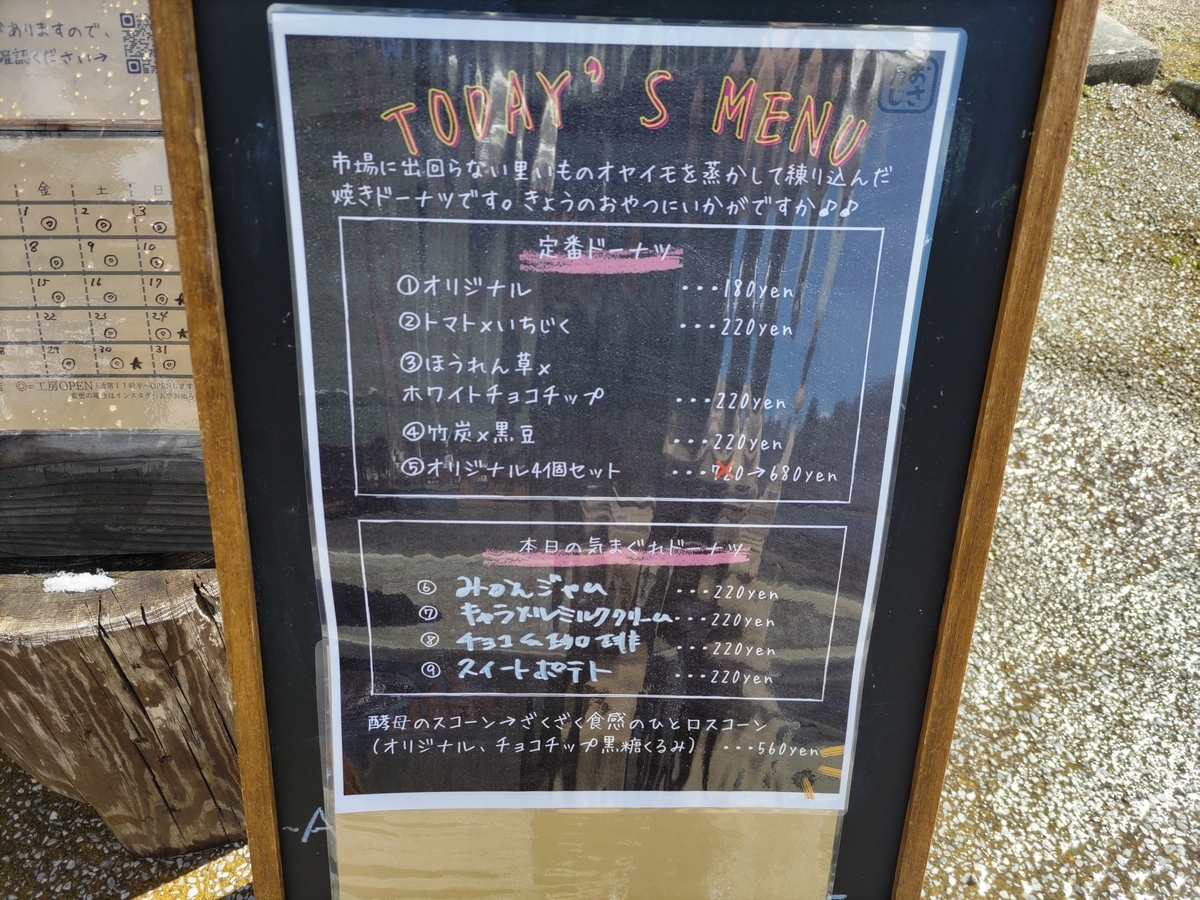 ありますので、
確認ください→
金 土 日
1 2 3
8 9 10
15 16 17
22 23 24
29 30 31
◎=工房OPEN(通常11時半〜OPENします
変更の場合はインスタグラムでお知ら
TODAY'S MENU
おさ
市場に出回らない里いものオヤイモを蒸かして練り込んだ
焼きドーナツです。きょうのおやつにいかがですか♪♪
定番ドーナツ
①オリジナル ・・・180yen
②トマト×いちじく ・・・220yen
③ほうれん草×
ホワイトチョコチップ ・・・220yen
④竹炭×黒豆 ・・・220yen
⑤オリジナル4個セット ・・・720→680yen
本日の気まぐれドーナツ
⑥ みかんジャム ・・・220yen
⑦ キャラメルミルククリーム・・・220yen
⑧ チョコ ・・・220yen
⑨ スイートポテト ・・・220yen
酵母のスコーン→ざくざく食感のひと口スコーン
(オリジナル、チョコチップ黒糖くるみ) ・・・560yen
~A